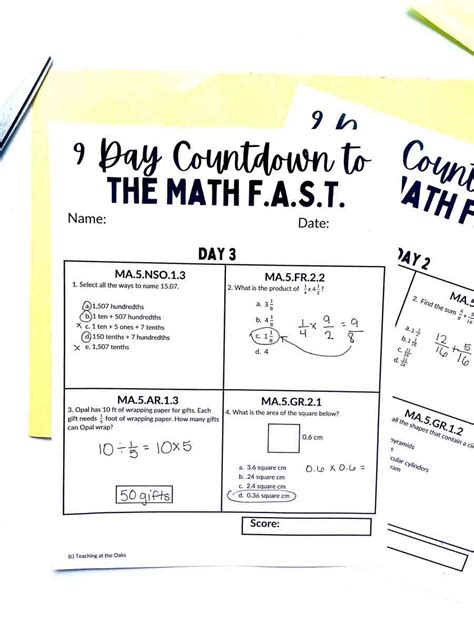 9 Day Countdown to
THE MATH F.A.S.T.
Name:
Date:
DAY 3
MA.5.NSO.1.3
1. Select all the ways to name 15.07.
a. 1,507 hundredths
b. 1 ten + 507 hundredths
x c. 1 ten + 5 ones + 7 tenths
d. 150 tenths + 7 hundredths
x e. 1,507 tenths
MA.5.FR.2.2
2. What is the product of 1/4 x 4 1/2?
a. 3 1/8
b. 4 1/8
c. 1 1/8
d. 4
1/4 x 9/2 = 9/8
MA.5.AR.1.3
3. Opal has 10 ft of wrapping paper for gifts. Each
gift needs 1/5 foot of wrapping paper. How many gifts
can Opal wrap?
10 ÷ 1/5 = 10x5
50 gifts
MA.5.GR.2.1
4. What is the area of the square below?
0.6 cm
a. 3.6 square cm
b. .24 square cm
c. 2.4 square cm
d. 0.36 square cm
0.6 x 0.6 =
Score:
(c) Teaching at the Oaks
9
Count
MATH F
DAY 2
MA.5
2. Find the sum
12/16 + 5/16
MA.5.GR.1.2
all the shapes that contain a ci
pyramids
cular cylinders